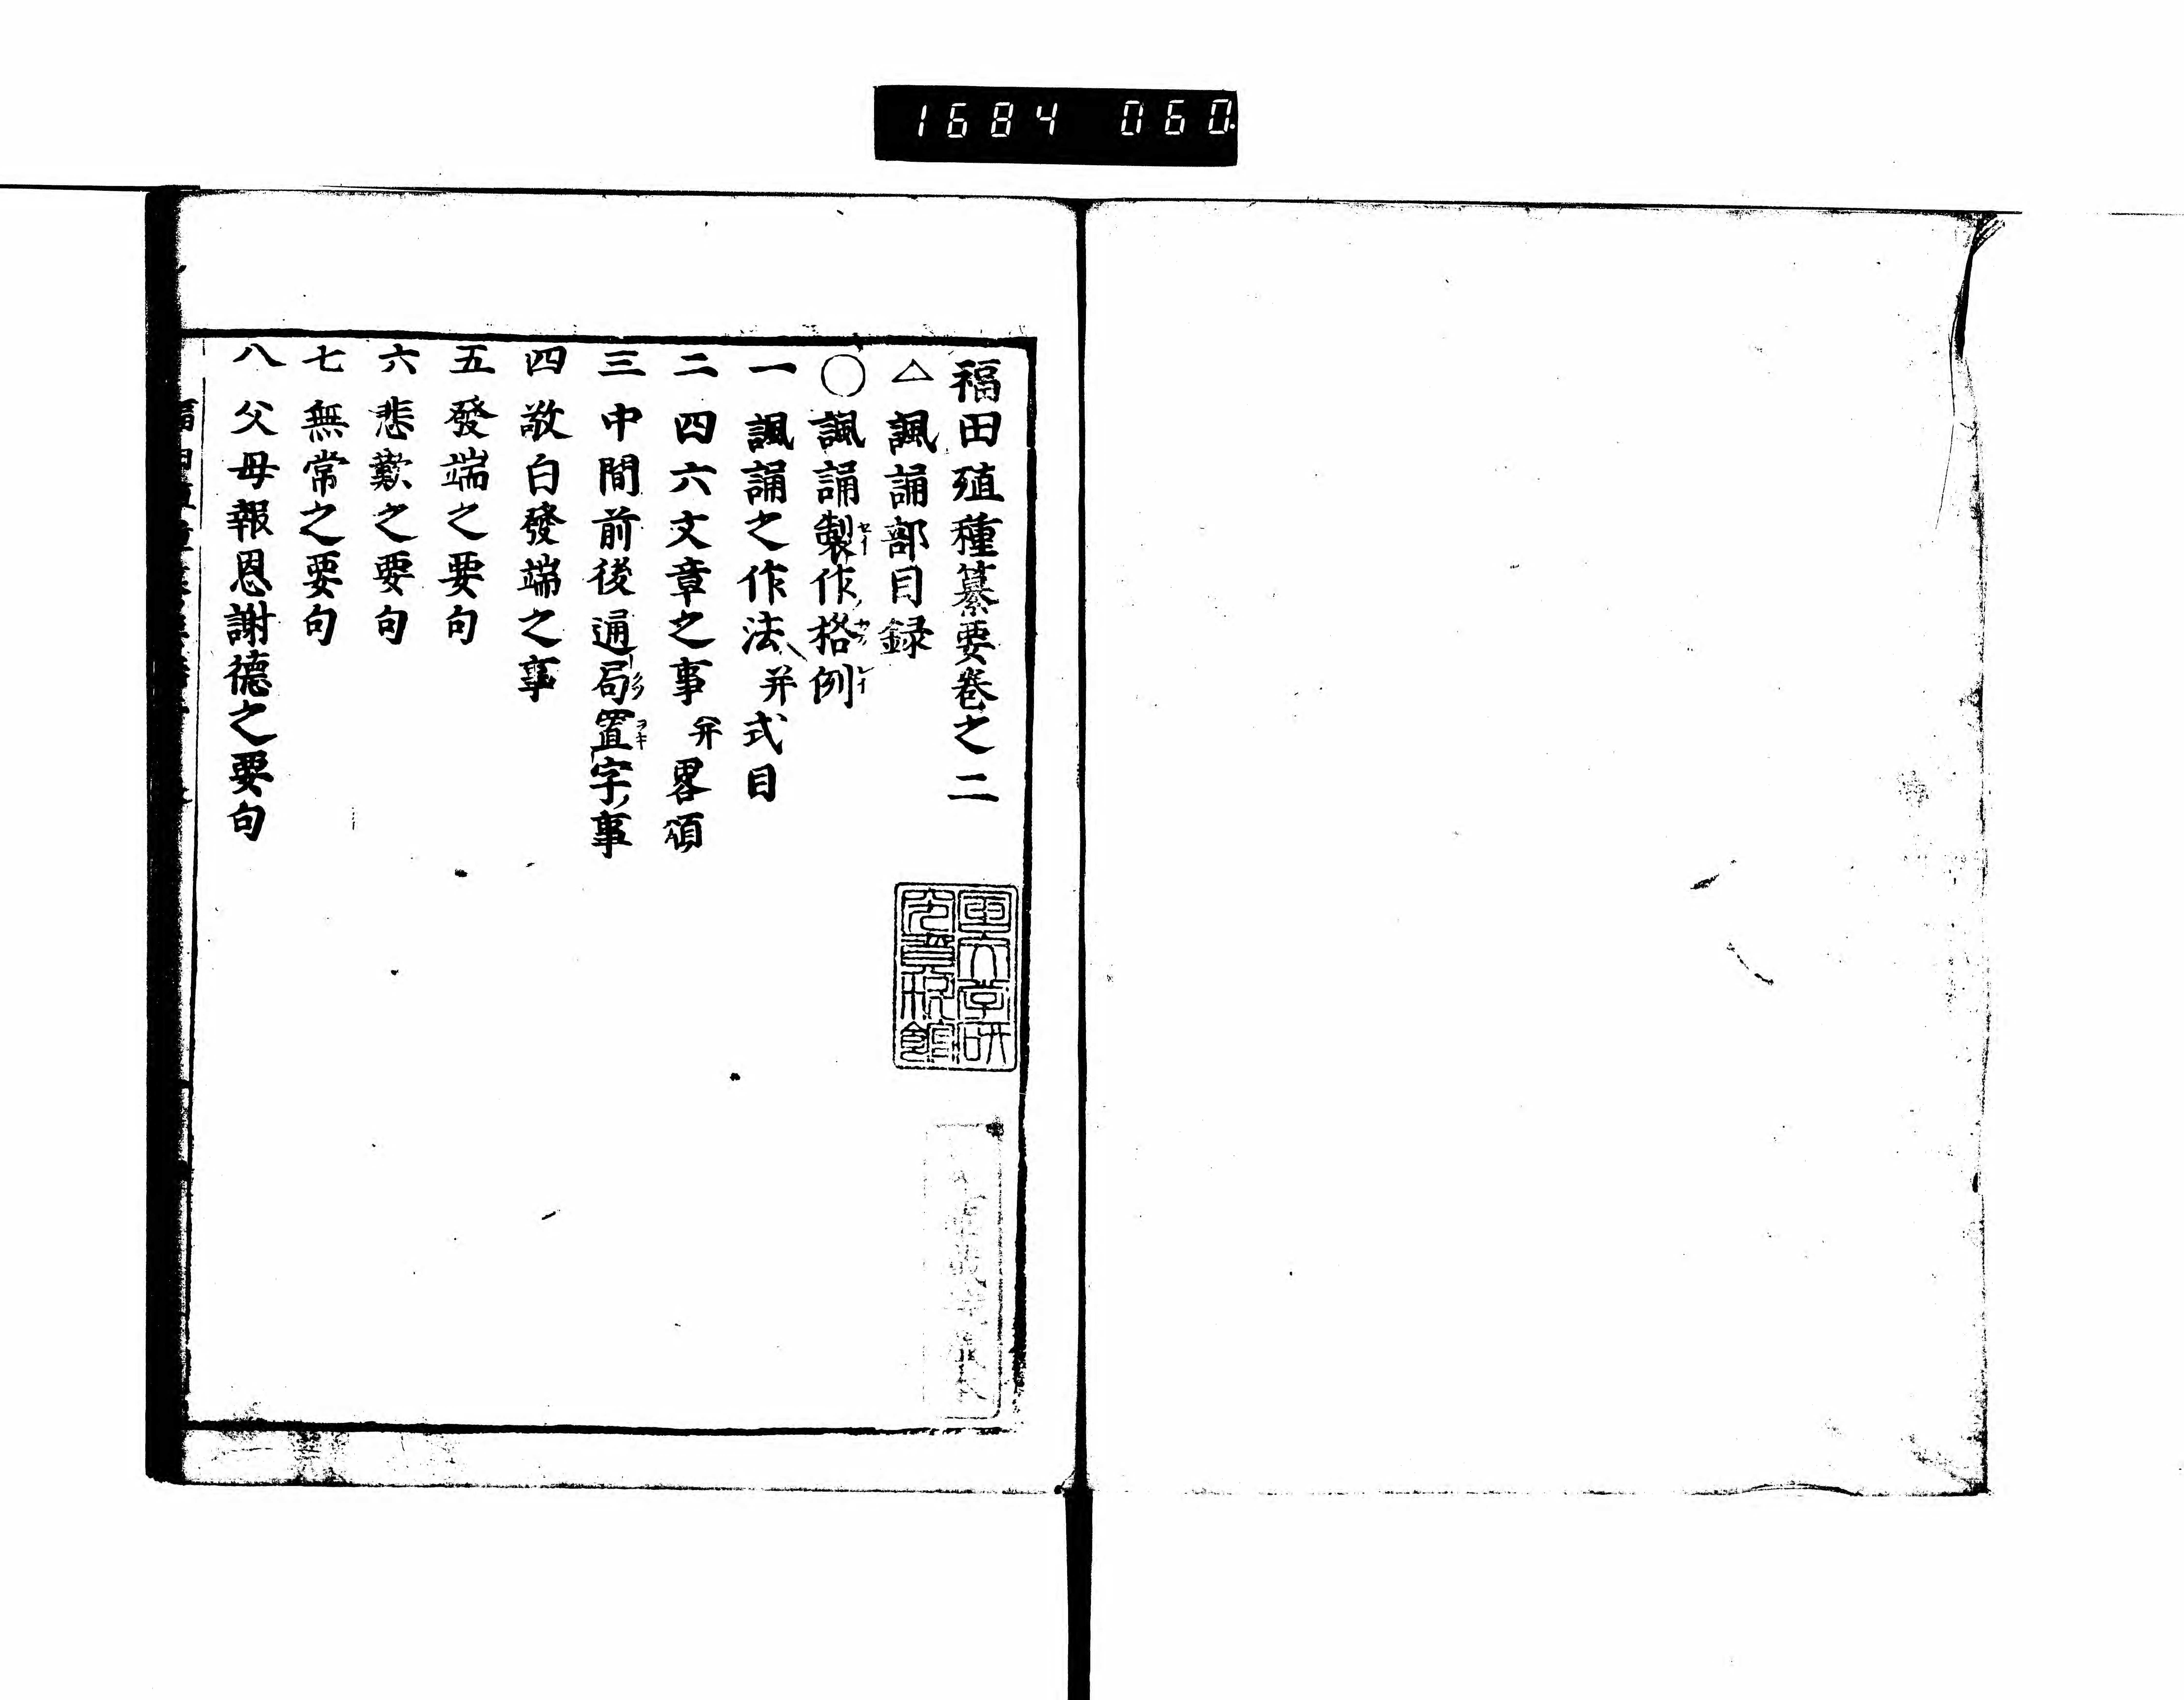 1684 060
福田殖種纂要卷之二
△諷誦部目録
○諷誦製作格例
一 諷誦之作法并式目
二 四六文章之事并畧頌
三 中間前後通局置字ノ事
四 敬白發端之事
五 發端之要句
六 悲歎之要句
七 無常之要句
八 父母報恩謝德之要句
国文学研
究資料館